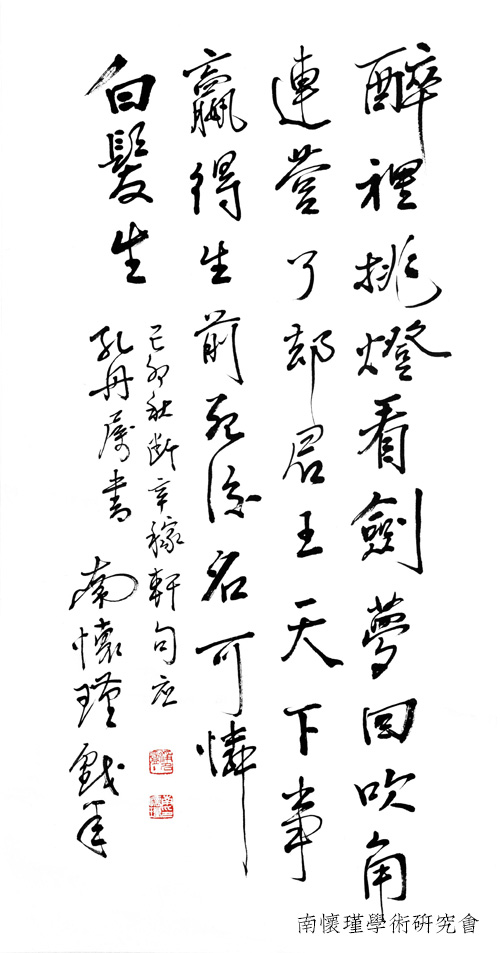 醉裡挑燈看劍夢回吹角
連營了却君王天下事
贏得生前死後名可憐
白髮生
己卯秋断辛稼軒句应
孔丹属書 南懷瑾戲筆
南懷瑾學術研究會